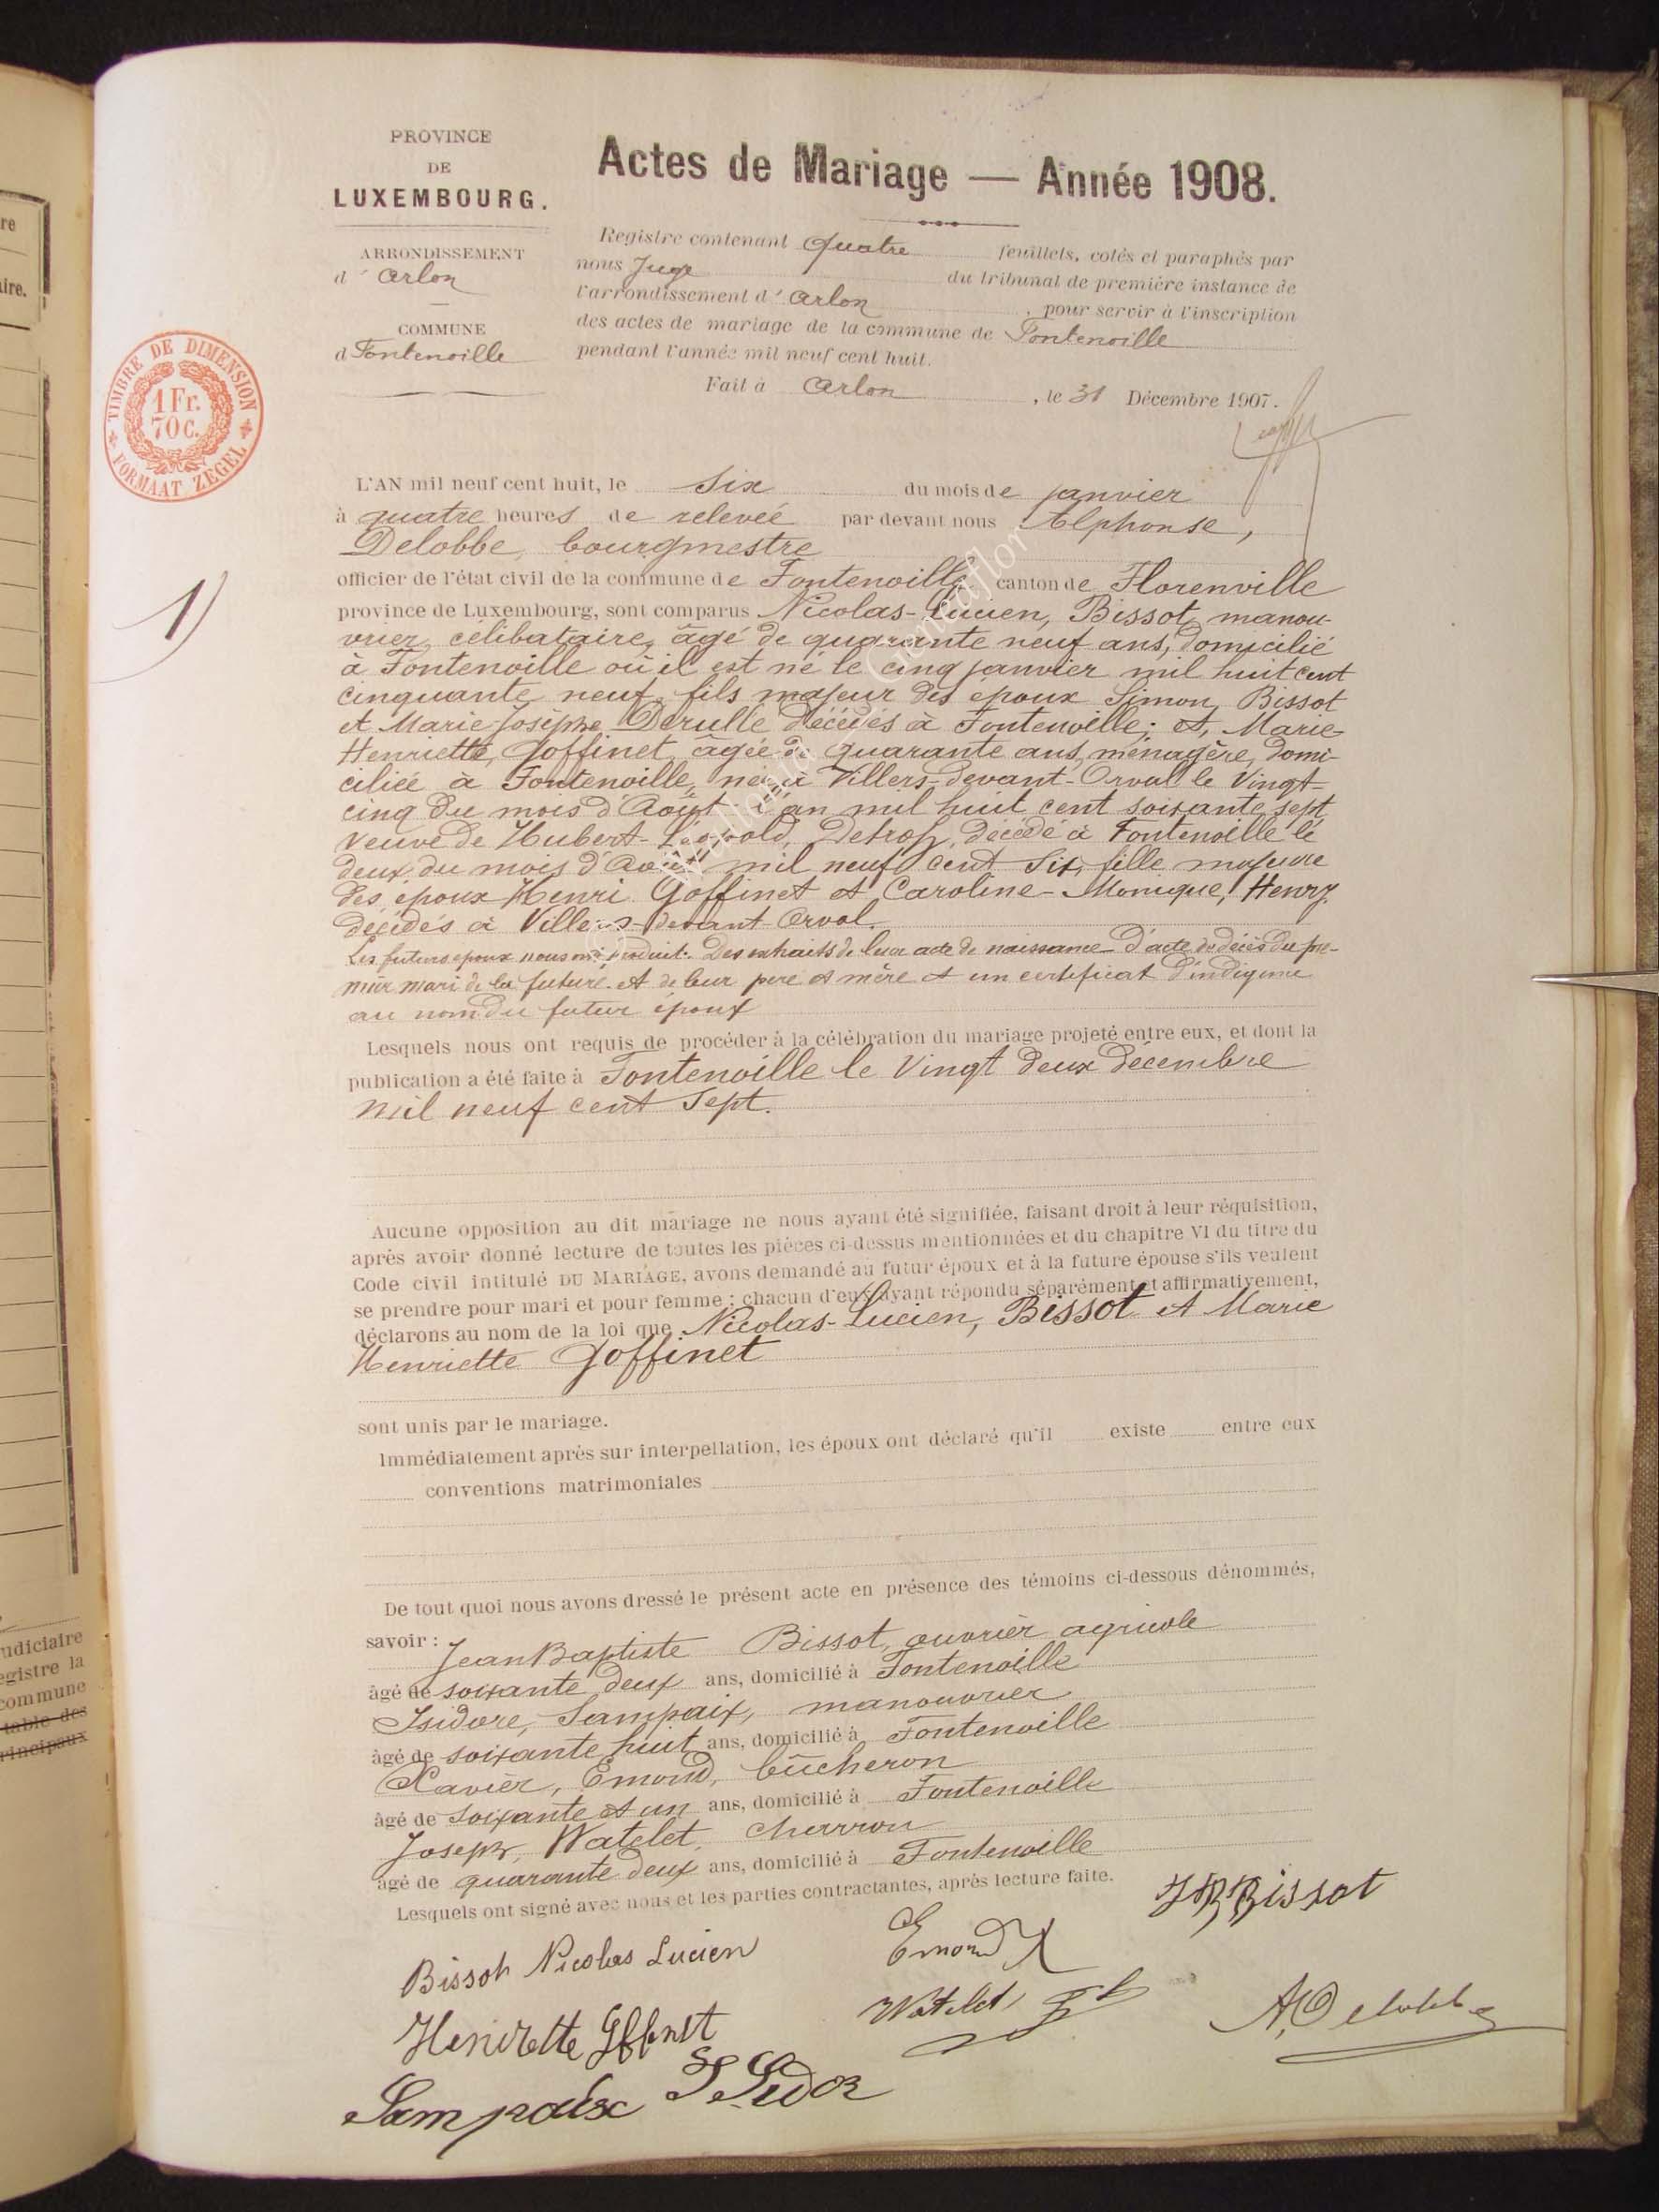 PROVINCE
DE
LUXEMBOURG.
ARRONDISSEMENT
d'Arlon
COMMUNE
d Fontenoille
TIMBRE DE DIMENSION
1 Fr.
70 c.
FORMAAT ZEGEL
Actes de Mariage — Année 1908.
Registre contenant Quatre feuillets, cotés et paraphés par
nous Juge du tribunal de première instance de
l'arrondissement d'Arlon, pour servir à l'inscription
des actes de mariage de la commune de Fontenoille
pendant l'année mil neuf cent huit.
Fait à Arlon, le 31 Décembre 1907.
1)
L'AN mil neuf cent huit, le Six du mois de janvier
à quatre heures de releveé par devant nous Alphonse,
Delobbe, bourgmestre
officier de l'état civil de la commune de Fontenoille canton de Florenville
province de Luxembourg, sont comparus Nicolas-Lucien, Bissot, manou-
vrier, célibataire, âgé de quarante neuf ans, domicilié
à Fontenoille où il est né le cinq janvier mil huit cent
cinquante neuf fils majeur des époux Simon, Bissot
et Marie-Josèphe Derulle décédés à Fontenoille; et, Marie-
Henriette, Goffinet, âgée de quarante ans, ménagère, domi-
ciliée à Fontenoille, née à Villers-devant-Orval le Vingt-
cinq du mois d'Août l'an mil huit cent soixante sept
veuve de Hubert-Léopold, décédé à Fontenoille le
deux du mois d'Août mil neuf cent Six, fille majeure
des époux Henri Goffinet et Caroline-Monique, Henry
décédés à Villers-devant-Orval.
Les futurs epoux nous ont produit: Des extraits de leur acte de naissance d'acte de décès du pre-
mier mari de la future et de leur père et mère et un certificat d'indigence
au nom du futur époux
Lesquels nous ont requis de procéder à la célébration du mariage projeté entre eux, et dont la
publication a été faite à Fontenoille le Vingt deux Décembre
mil neuf cent Sept.
Aucune opposition au dit mariage ne nous ayant été signifiée, faisant droit à leur réquisition,
après avoir donné lecture de toutes les pièces ci-dessus mentionnées et du chapitre VI du titre du
Code civil intitulé DU MARIAGE, avons demandé au futur époux et à la future épouse s'ils veulent
se prendre pour mari et pour femme : chacun d'eux ayant répondu séparément et affirmativement,
déclarons au nom de la loi que Nicolas-Lucien, Bissot et Marie
Henriette Goffinet
sont unis par le mariage.
Immédiatement après sur interpellation, les époux ont déclaré qu'il existe entre eux
conventions matrimoniales
De tout quoi nous avons dressé le présent acte en présence des témoins ci-dessous dénommés,
savoir : Jean Baptiste Bissot, ouvrier agricole
âgé de soixante deux ans, domicilié à Fontenoille
Isidore, Sampaix, manouvrier
âgé de soixante huit ans, domicilié à Fontenoille
Xavier, Emond, bûcheron
âgé de soixante et un ans, domicilié à Fontenoille
Joseph, Watelet, charron
âgé de quarante deux ans, domicilié à Fontenoille
Lesquels ont signé avec nous et les parties contractantes, après lecture faite.
JB Bissot
Bissot Nicolas Lucien
Emond X
Watelet
A. Delobbe
Henriette
Sampaix
re
ire.
udiciaire
egistre la
commune
table des
rincipaux